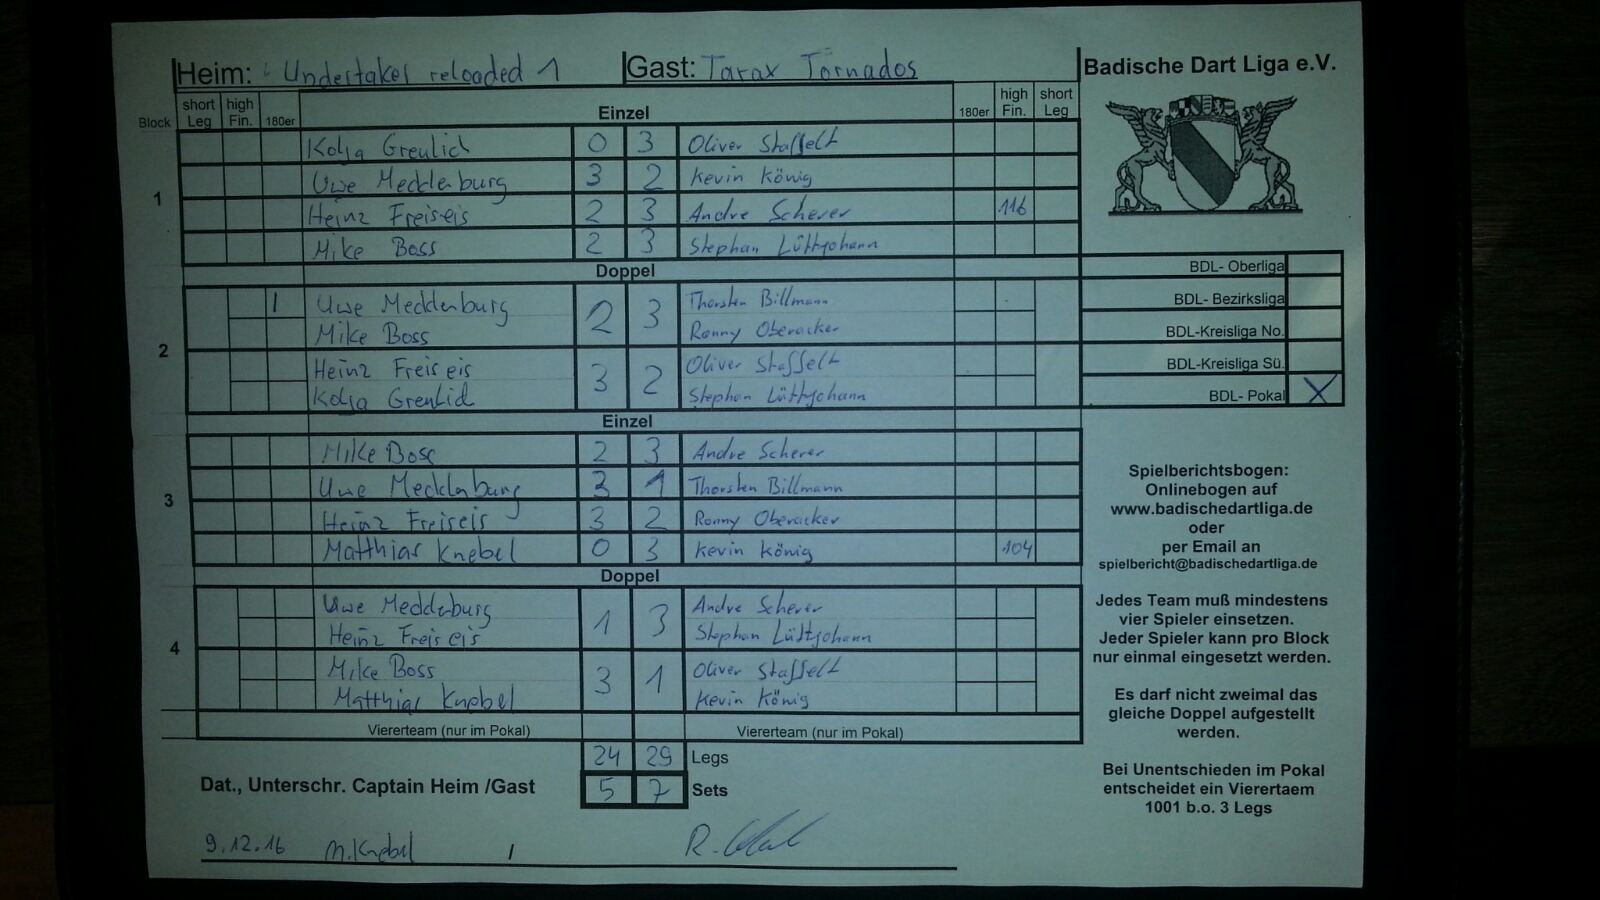 Heim: Undertaker reloaded 1 Gast: Tarax Tornados
Badische Dart Liga e.V.
Block short Leg high Fin. 180er Einzel 180er high Fin. short Leg
1
Kolja Greulich 0 3 Oliver Stasselt
Uwe Mecklenburg 3 2 Kevin König
Heinz Freiseis 2 3 Andre Scherer 116
Mike Boss 2 3 Stephan Lüttjohann
Doppel
2
1 Uwe Mecklenburg 2 3 Thorsten Billmann
Mike Boss Ronny Oberacker
Heinz Freiseis 3 2 Oliver Stasselt
Kolja Greulich Stephan Lüttjohann
Einzel
3
Mike Boss 2 3 Andre Scherer
Uwe Mecklenburg 3 1 Thorsten Billmann
Heinz Freiseis 3 2 Ronny Oberacker
Matthias Knebel 0 3 Kevin König 104
Doppel
4
Uwe Mecklenburg 1 3 Andre Scherer
Heinz Freiseis Stephan Lüttjohann
Mike Boss 3 1 Oliver Stasselt
Matthias Knebel Kevin König
Viererteam (nur im Pokal) Viererteam (nur im Pokal)
24 29 Legs
Dat., Unterschr. Captain Heim /Gast 5 7 Sets
9.12.16 M.Knebel / R.
BDL- Oberliga
BDL- Bezirksliga
BDL-Kreisliga No.
BDL-Kreisliga Sü.
BDL- Pokal X
Spielberichtsbogen:
Onlinebogen auf
www.badischedartliga.de
oder
per Email an
spielbericht@badischedartliga.de
Jedes Team muß mindestens
vier Spieler einsetzen.
Jeder Spieler kann pro Block
nur einmal eingesetzt werden.
Es darf nicht zweimal das
gleiche Doppel aufgestellt
werden.
Bei Unentschieden im Pokal
entscheidet ein Vierertaem
1001 b.o. 3 Legs